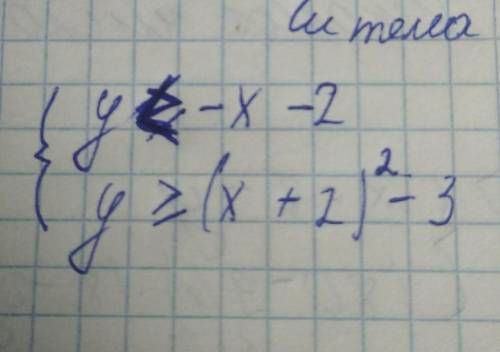 Система
y ≤ -x - 2
y ≥ (x + 2)² - 3